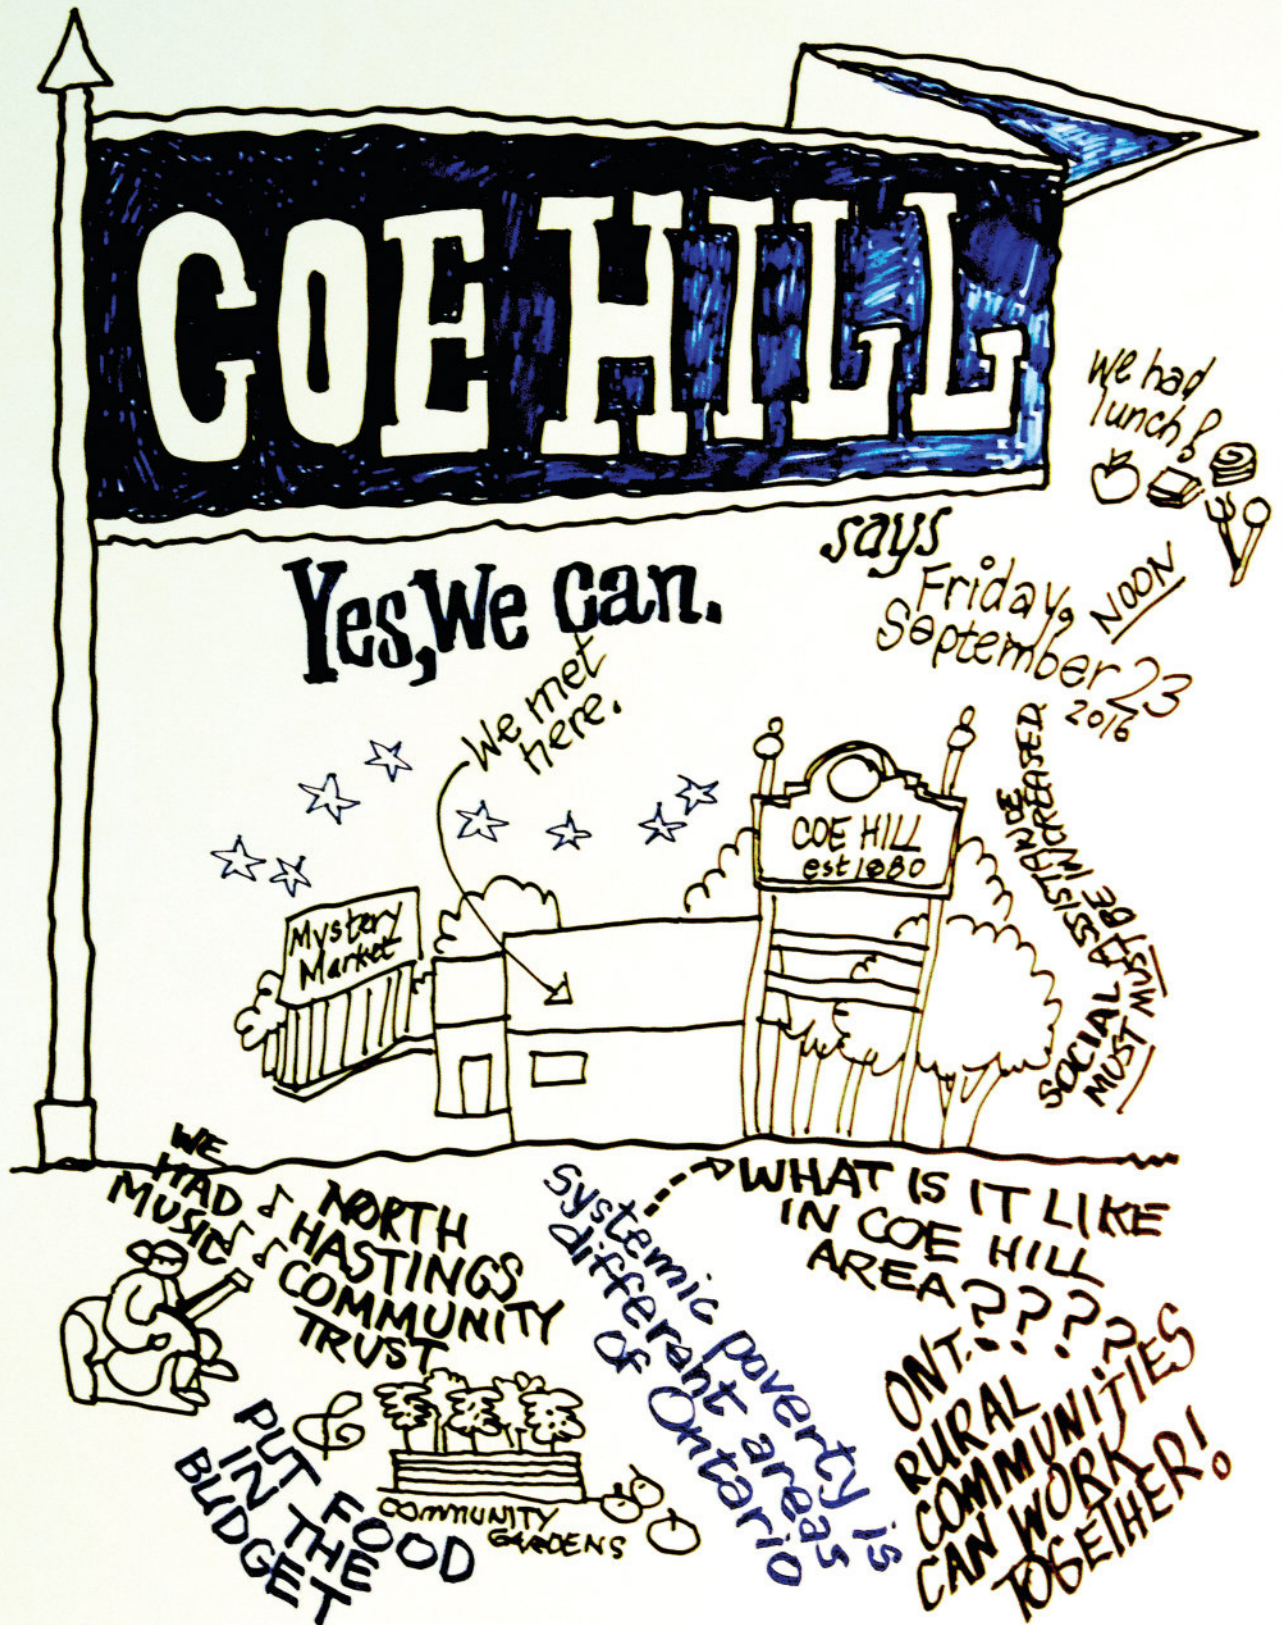 COE HILL
we had
lunch!
says
Yes, We Can.
Friday,
NOON
September 23
2016
We met
here.
COE HILL
est 1880
Mystery
Market
SOCIAL ASSISTANCE
MUST MUST BE INCREASED
WE
HAD
MUSIC
NORTH
HASTINGS
COMMUNITY
TRUST
PUT FOOD
IN THE
BUDGET
COMMUNITY
GARDENS
Systemic poverty is
different areas
of Ontario
WHAT IS IT LIKE
IN COE HILL
AREA????
ONT.
RURAL
COMMUNITIES
CAN WORK
TOGETHER!